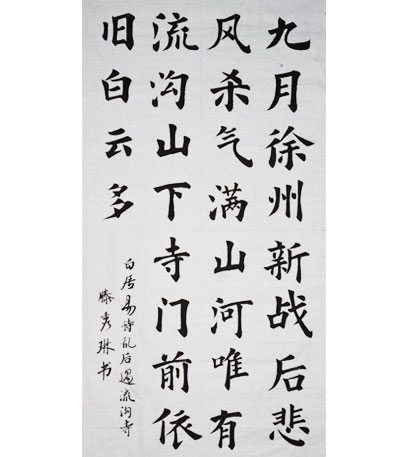 九月徐州新战后悲
风杀气满山河唯有
流沟山下寺门前依
旧白云多
白居易诗乱后过流沟寺
滕秀琳书